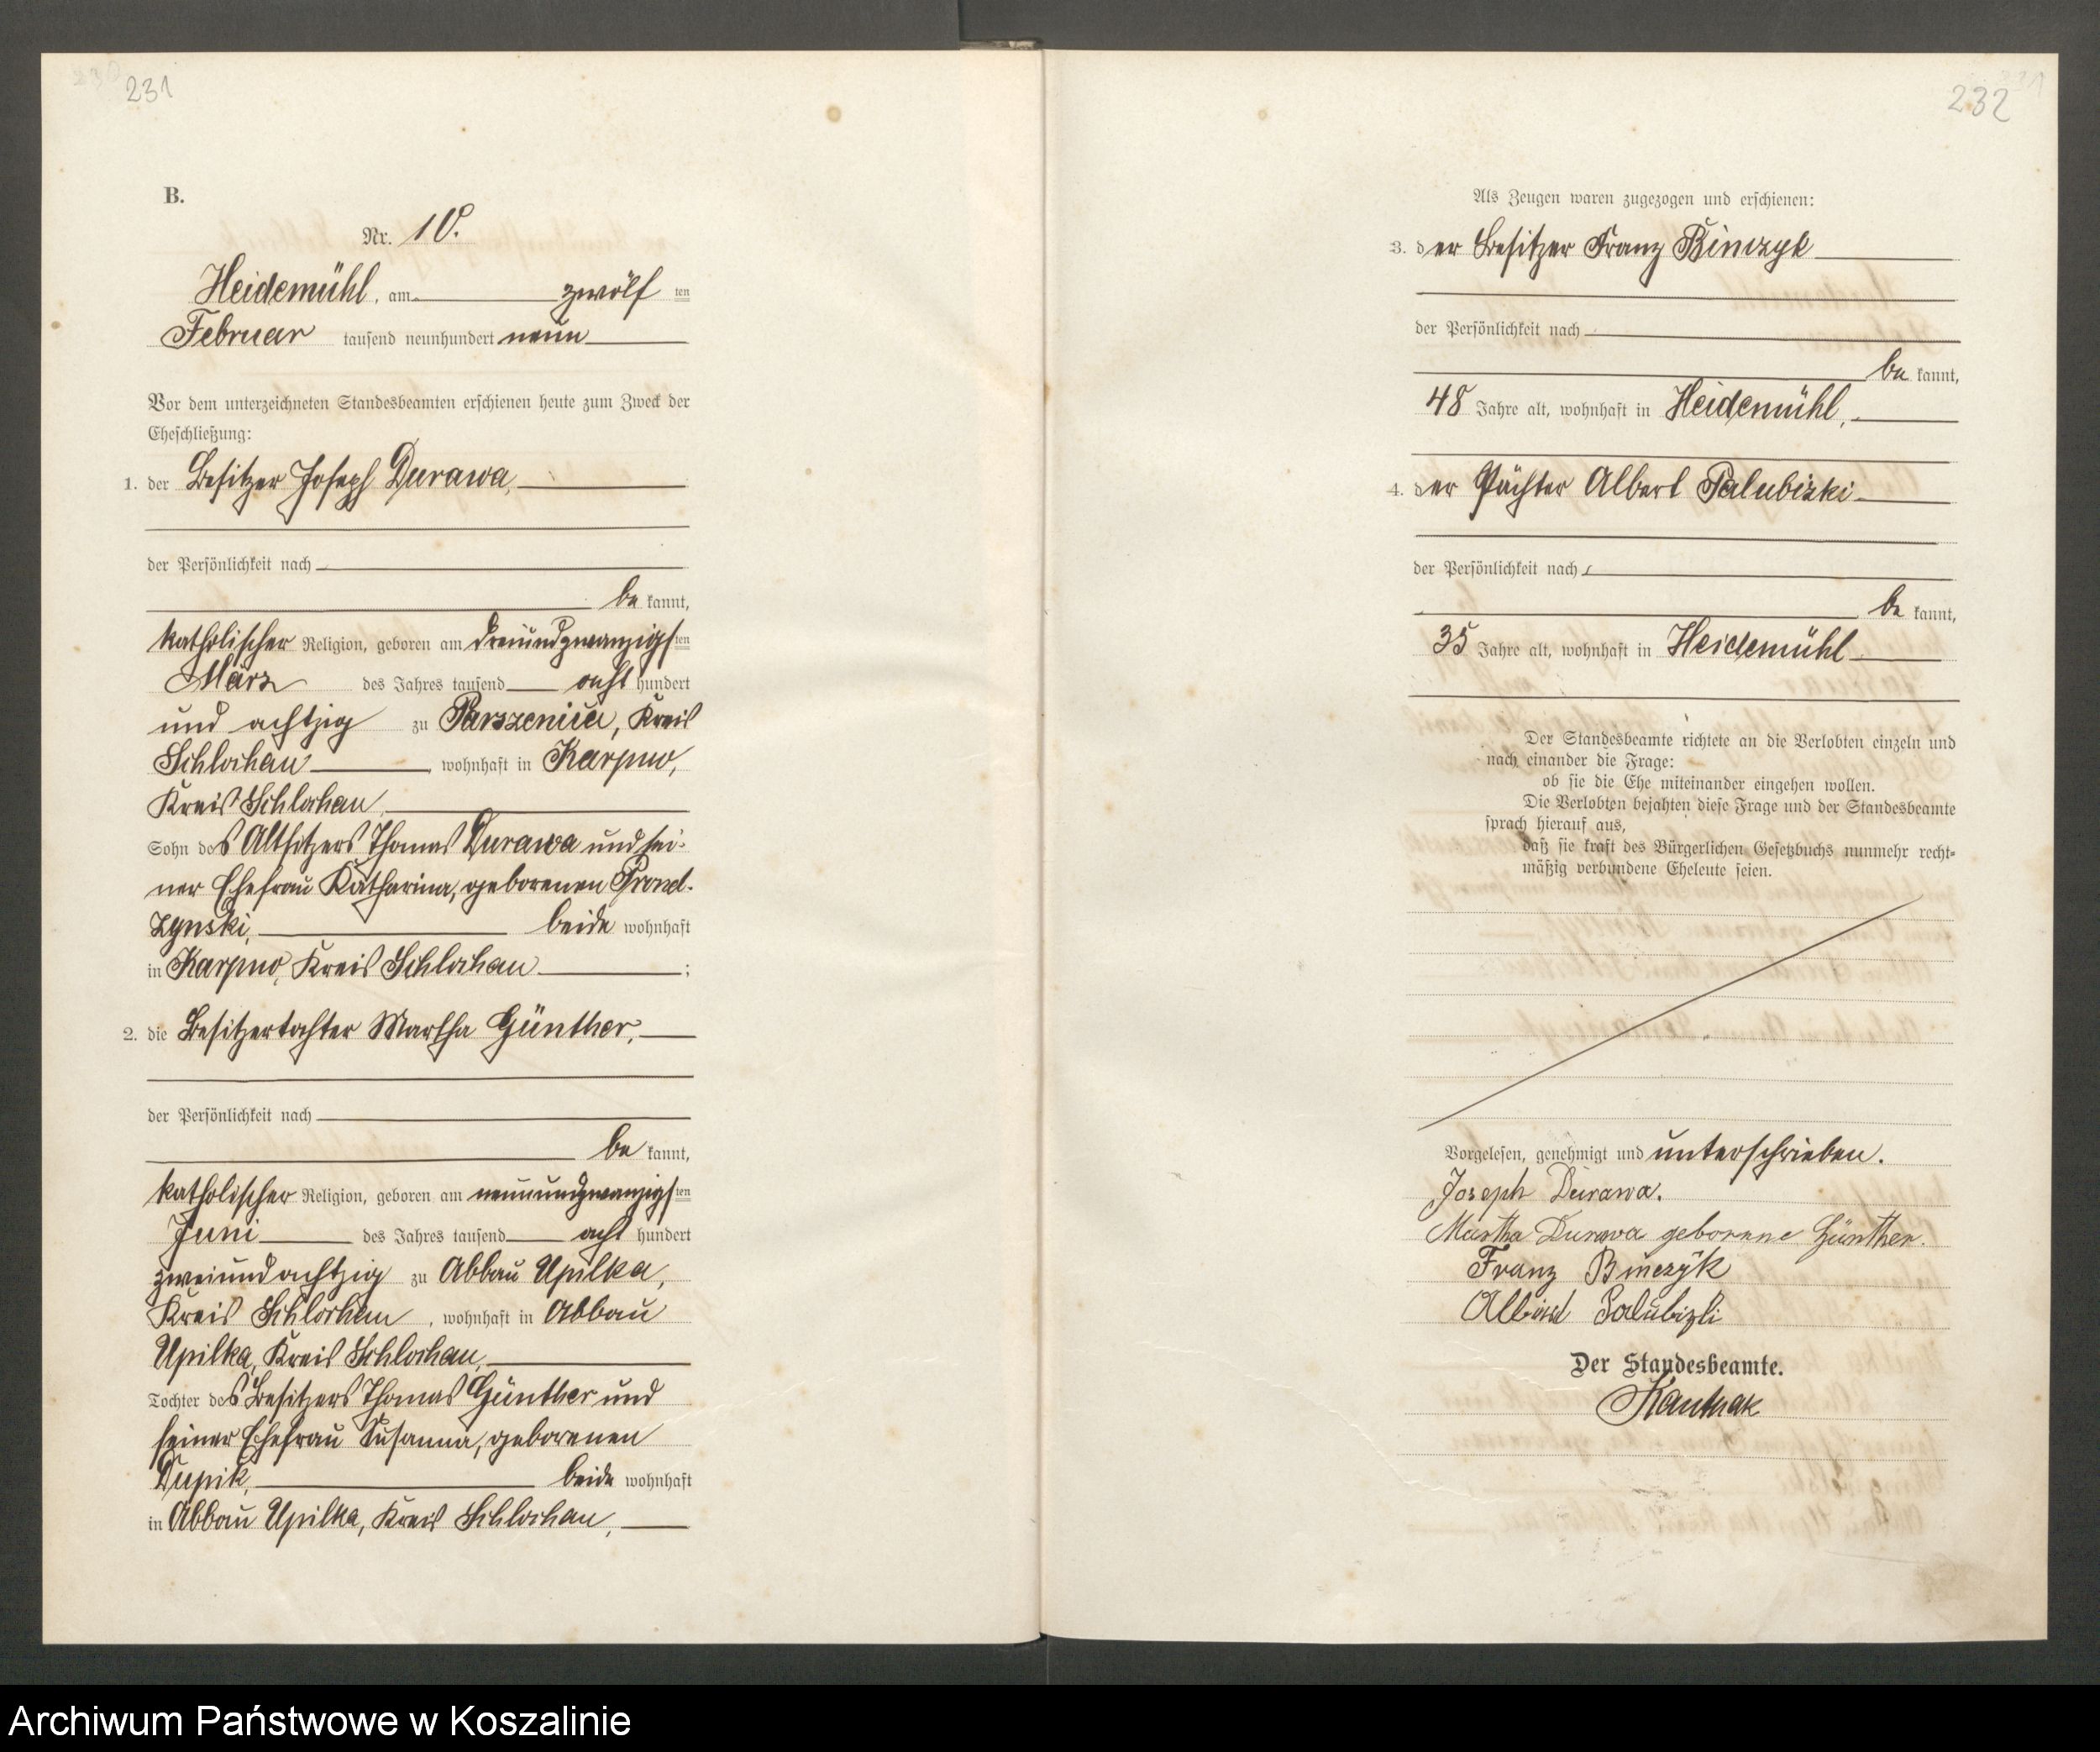 231
B.
Nr. 10.
Heidemühl, am zwölf ten
Februar tausend neunhundert neun
Vor dem unterzeichneten Standesbeamten erschienen heute zum Zweck der
Eheschließung:
1. der Besitzer Joseph Durawa,
der Persönlichkeit nach
be kannt,
katholischer Religion, geboren am dreiundzwanzigs ten
März des Jahres tausend acht hundert
und achtzig zu Parszenica, Kreis
Schlochau, wohnhaft in Karpno,
Kreis Schlochau,
Sohn des Altsitzers Thomas Durawa und sei-
ner Ehefrau Katharina, geborenen Prond-
zynski, beide wohnhaft
in Karpno, Kreis Schlochau ;
2. die Besitzertochter Martha Günther,
der Persönlichkeit nach
be kannt,
katholischer Religion, geboren am neunundzwanzigs ten
Juni des Jahres tausend acht hundert
zweiundachtzig zu Abbau Upilka,
Kreis Schlochau, wohnhaft in Abbau
Upilka, Kreis Schlochau,
Tochter des Besitzers Thomas Günther und
seiner Ehefrau Susanna, geborenen
beide wohnhaft
in Abbau Upilka, Kreis Schlochau,
232
Als Zeugen waren zugezogen und erschienen:
3. der Besitzer Franz Binczyk
der Persönlichkeit nach
be kannt,
48 Jahre alt, wohnhaft in Heidemühl,
4. der Pächter Albert Palubizki
der Persönlichkeit nach
be kannt,
35 Jahre alt, wohnhaft in Heidemühl
Der Standesbeamte richtete an die Verlobten einzeln und
nach einander die Frage:
ob sie die Ehe miteinander eingehen wollen.
Die Verlobten bejahten diese Frage und der Standesbeamte
sprach hierauf aus,
daß sie kraft des Bürgerlichen Gesetzbuchs nunmehr recht-
mäßig verbundene Eheleute seien.
Vorgelesen, genehmigt und unterschrieben.
Joseph Durawa.
Martha Durawa geborene Günther.
Franz Binczyk
Albert Palubizki
Der Standesbeamte.
Kanthak
Archiwum Państwowe w Koszalinie